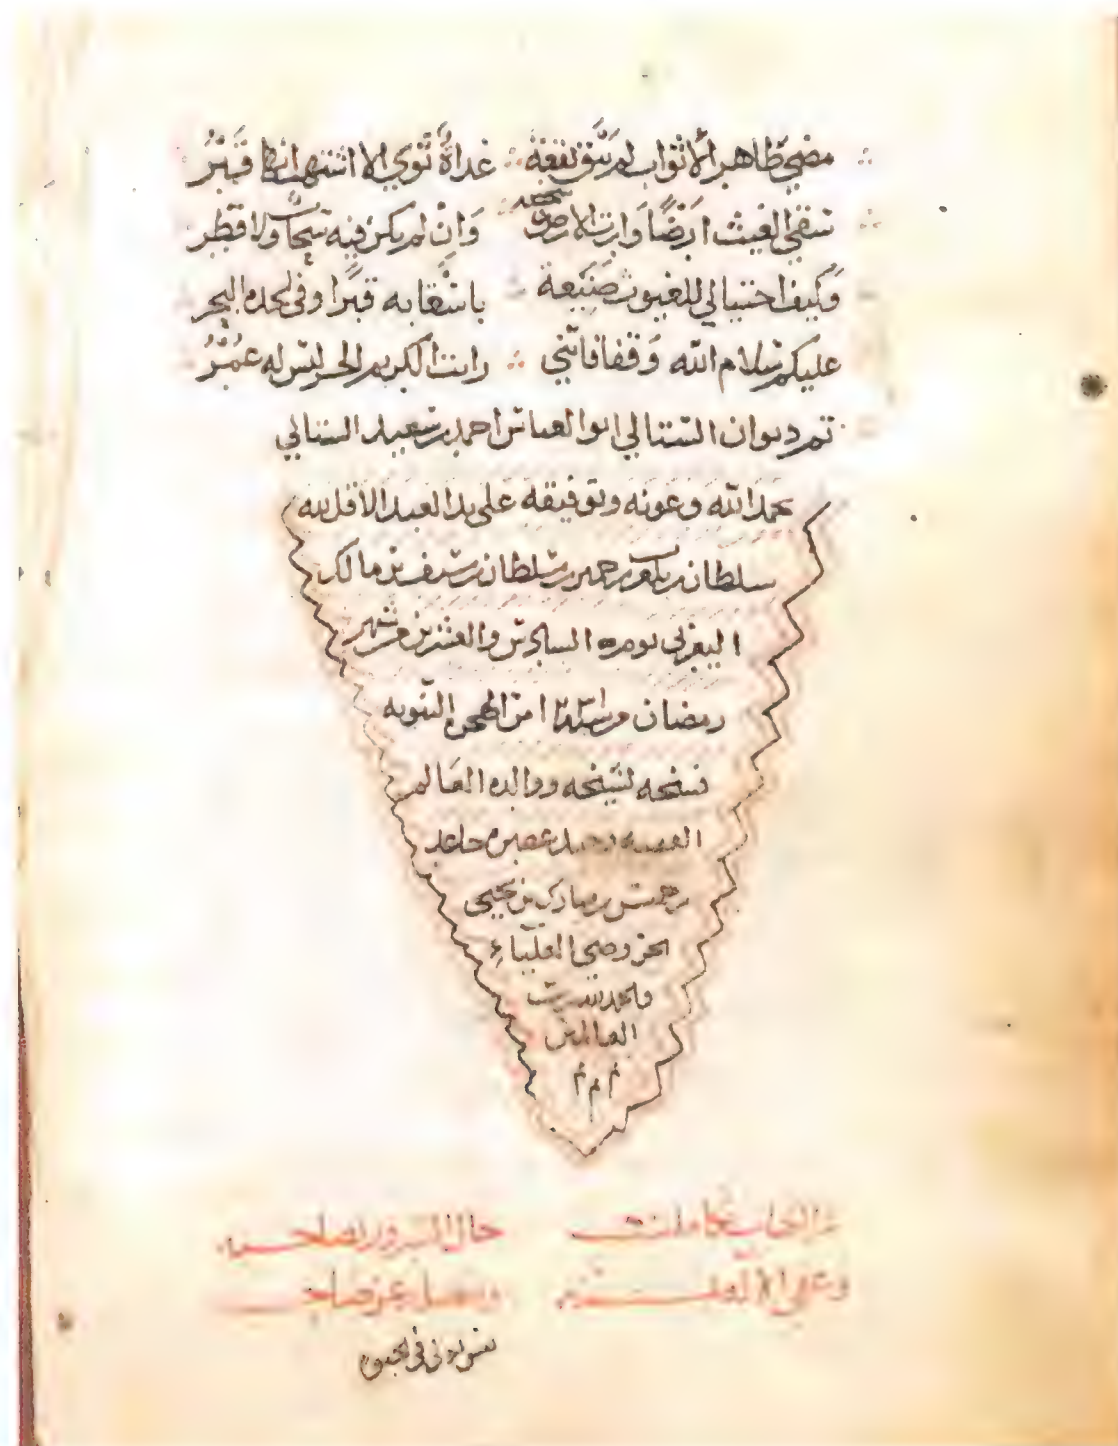 مضى طاهر الأثواب لم تبق بقعة ∴ غداة ثوى الا اشتهت انها قَبْرُ
سقى الغيث ارضًا وارت الارض شخصه وَاِن لم يكن فيه سحاب ولا قطر
وَكيف احتيالي للغيوث صَنيعة باسْقايه قبرًا وفى لحده البحر
عليكم سلام الله وَقفا فانني ∴ رايت الكريم الحر ليس له عُمْرُ
تم ديوان الستالي ابو العباس احمد بن سعيد الستالي
بحمد الله وعونه وتوفيقه على يد العبد الاقل لله
سلطان بن بلعرب بن سلطان بن سيف بن مالك
اليعربى يوم السادس والعشرين من شهر
رمضان من الهجره النبويه
نسخه لشيخه ووالده العالم
الفقيه وحيد عصره
خميس بن مبارك بن يحيى
الخروصي العليَاء
والحمد لله رب
العالمين
م م م
تم الكتاب تكاملت حال السرور لصاحبه
وعفى الاله